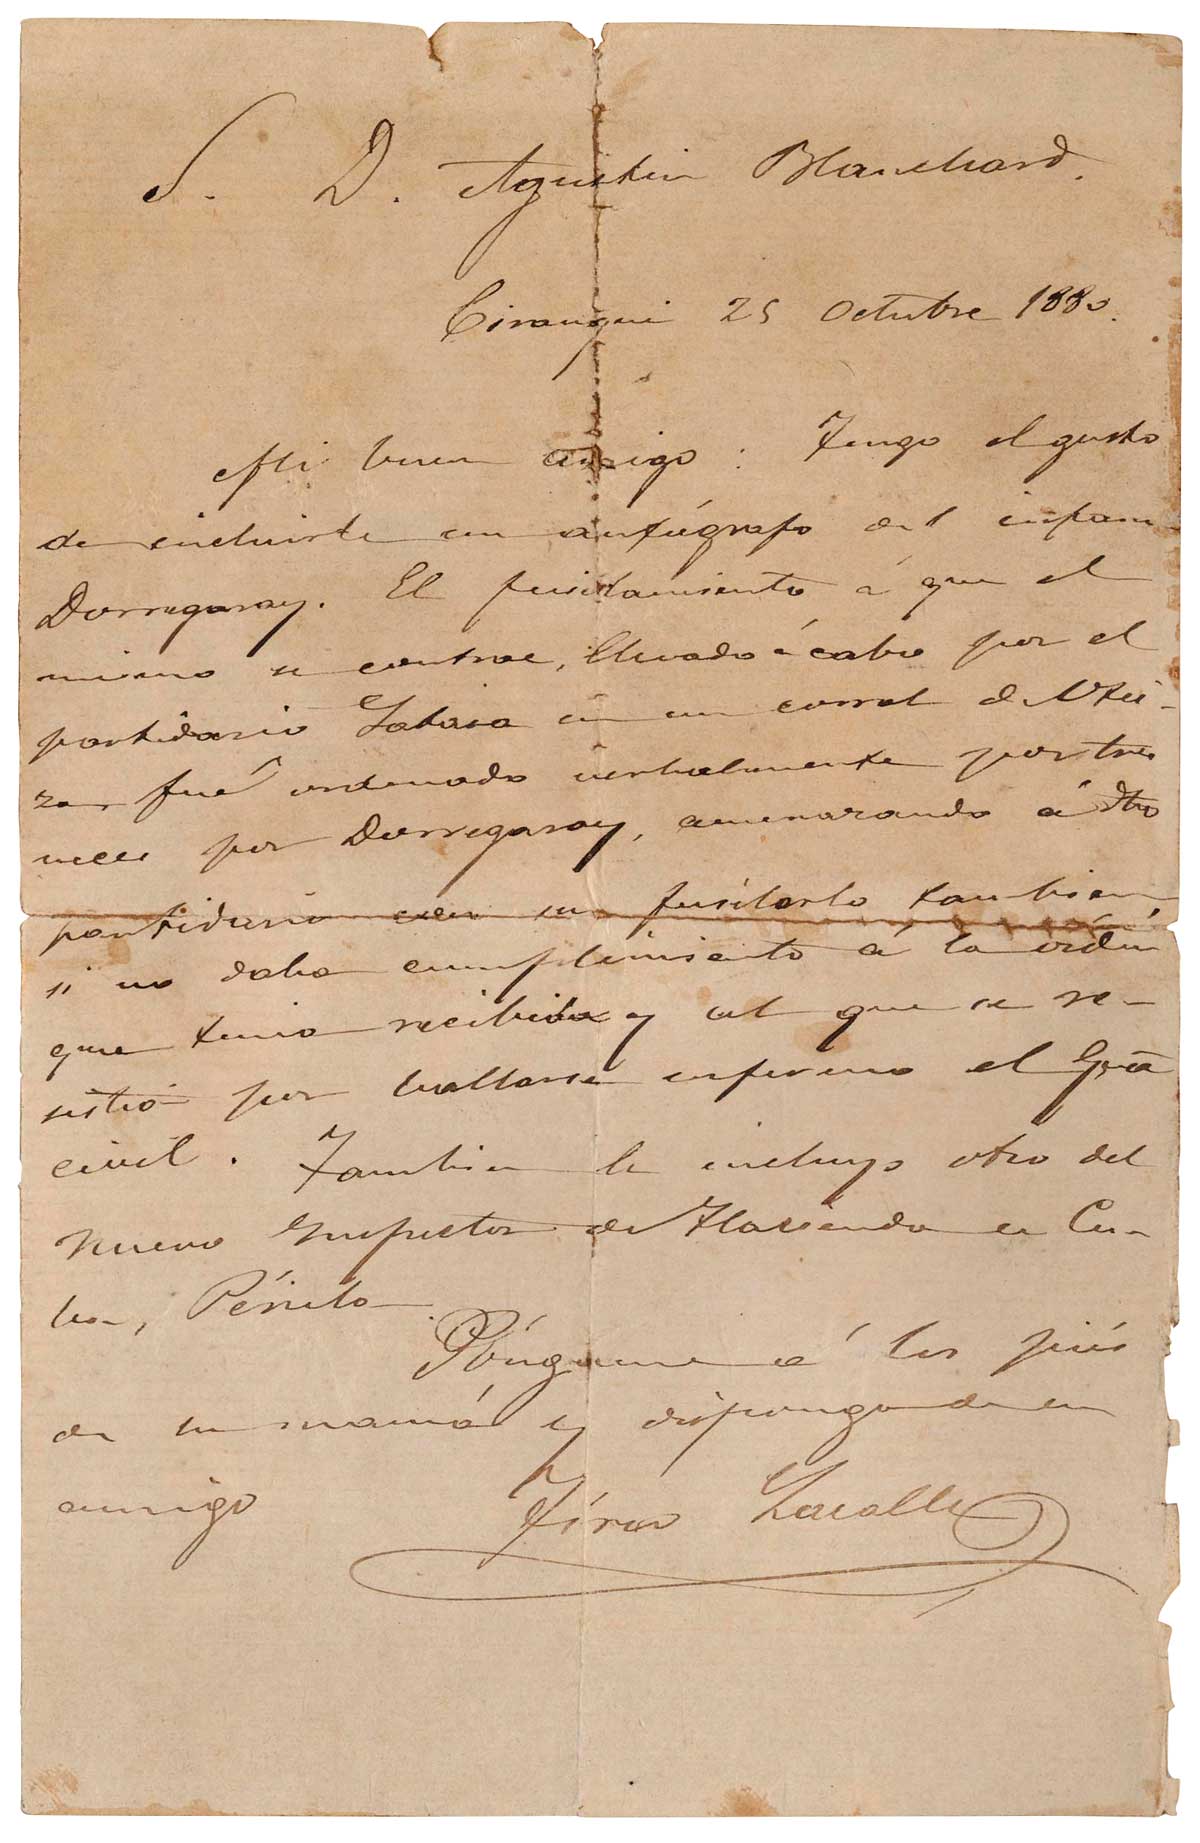 S. D. Agustin Blanchard.
Cirauqui 25 Octubre 1880.
Mi buen amigo: Tengo el gusto
de incluirle un autógrafo del infame
Dorregaray. El fusilamiento á que el
mismo se contrae, llevado á cabo por el
partidario en un corral de
fué ordenado verbalmente por tres
veces por Dorregaray, amenazando á dho
partidario con fusilarlo tambien,
si no daba cumplimiento á la orden
que tenia recibida y al que se re-
sistió por hallarse enfermo el Gũa
civil. Tambien le incluyo otro del
nuevo Inspector de Hacienda en Cu-
ba,
Póngame á los piés
de su mamá y disponga de su
amigo Lacalle